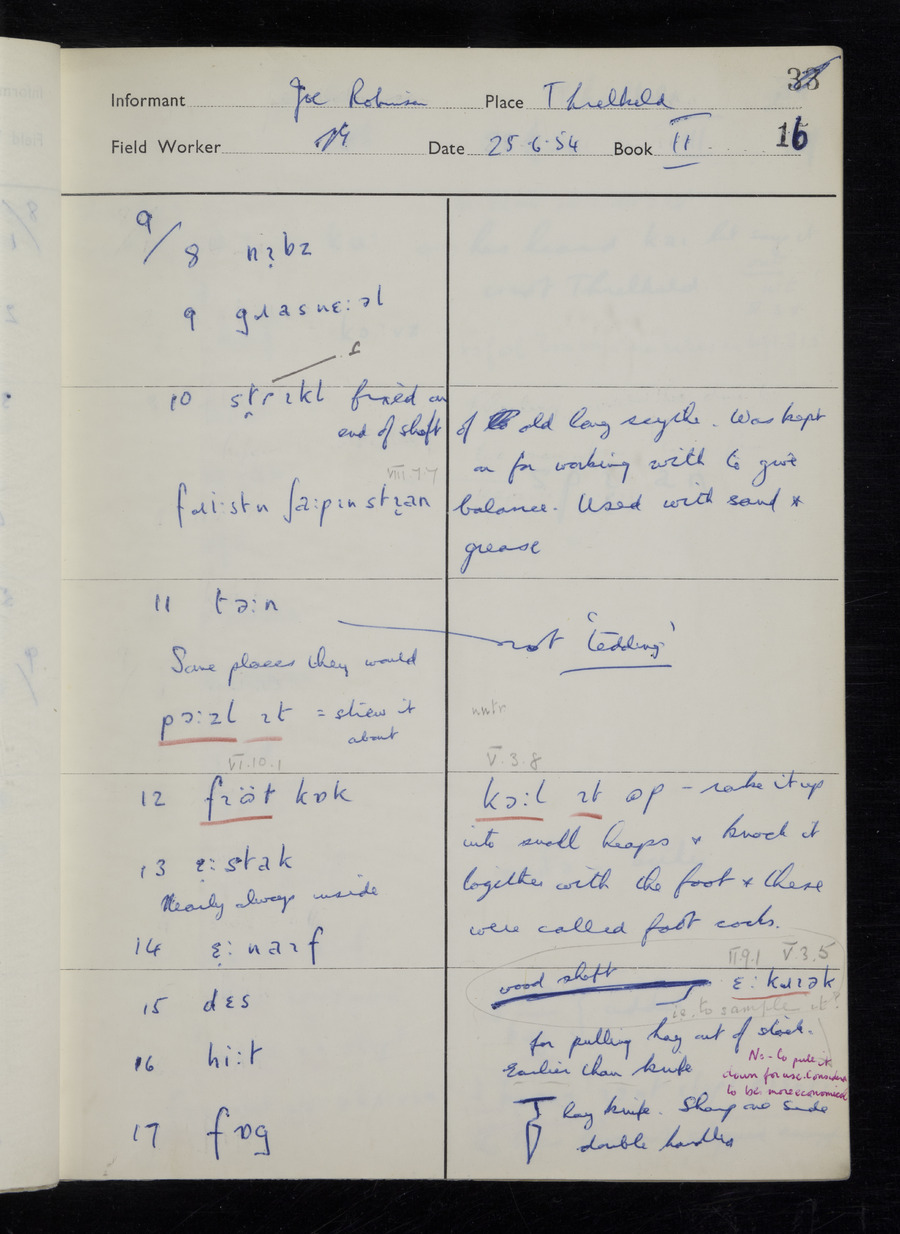 33
Informant Joe Robinson Place Threlkeld
Field Worker Date 25·6·54 Book II 16
9/
8 nɪ̣bz
9 gɹasnɛːəl
ɾ
10 strɪkl fixed on
end of shaft
of old long scythe. Was kept
on for working with to give
balance. Used with sand &
grease
VIII 7.7
11 təːn
not 'tedding'
Some places they would
pəːzl ɪt = strew it
about
VI.10.1
V.3.8
12 fɪöt kɒk
kəːl ɪt ɒp – rake it up
into small heaps & knock it
together with the foot & these
were called foot cocks.
13 ɛ̣ːstak
Nearly always inside
14 ɛ̣ːnaɪf
II.9.1 V.3.5
wood shaft
i.e. to sample it?
15 dɛs
for pulling hay out of stack.
Earlier than knife
No – to pull it
down for use. Considered
to be more economical
16 hiːt
hay knife. Sharp one side
double handles
17 fɒg